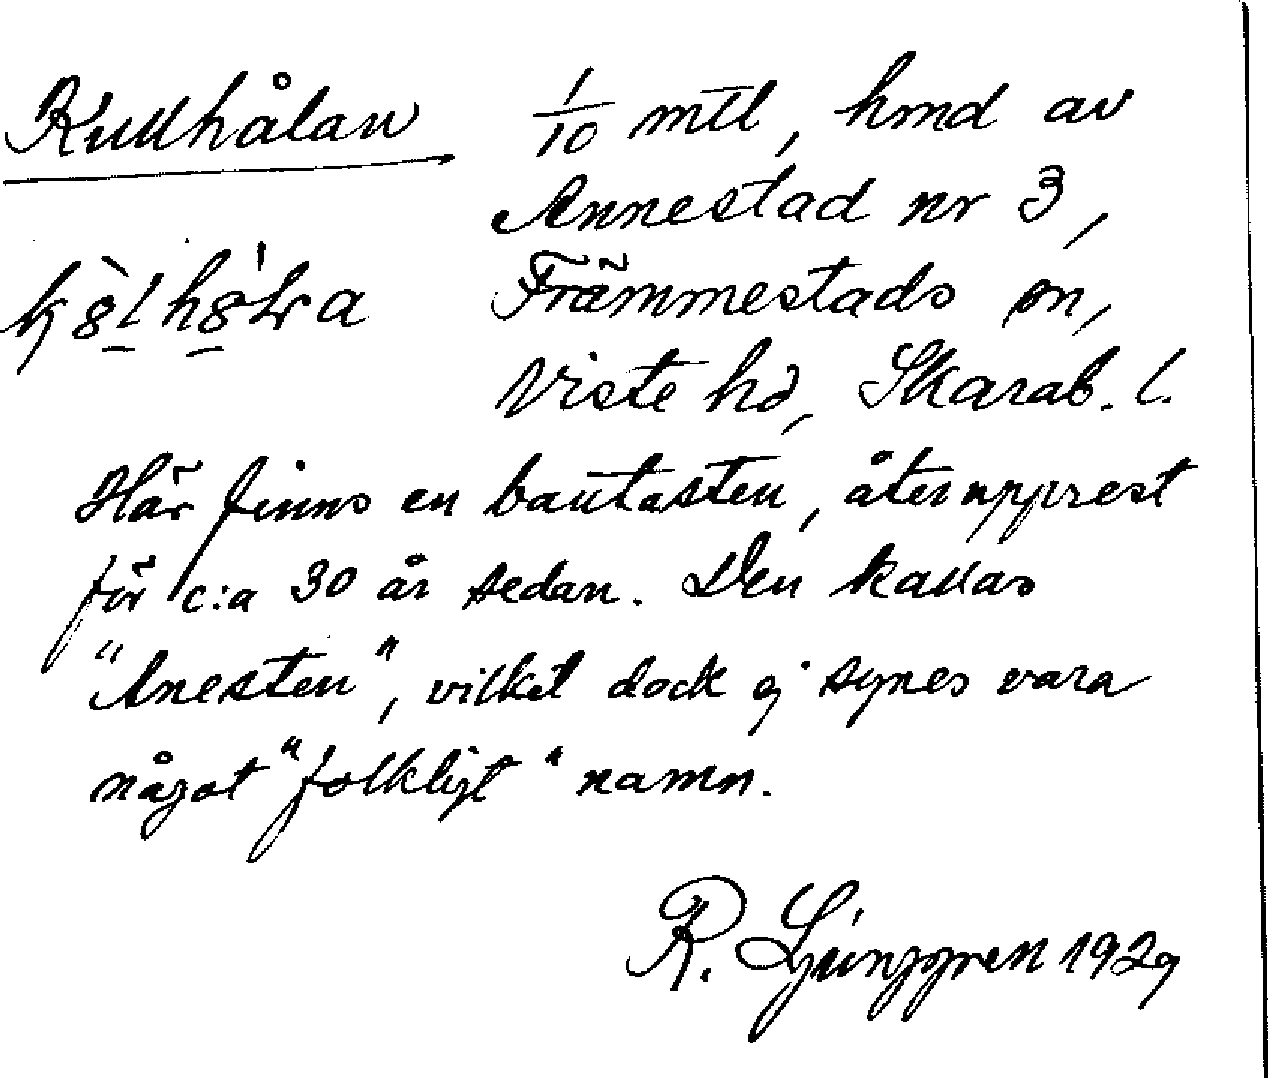 Kullhålan 1/10 mtl, hmd av
Annestad nr 3,
Främmestads sn,
Viste hd, Skarab. l.
Här finns en bautasten, återupprest
för c:a 30 år sedan. Den kallas
"Anesten", vilket dock ej synes vara
något "folkligt" namn.
R. Ljunggren 1929